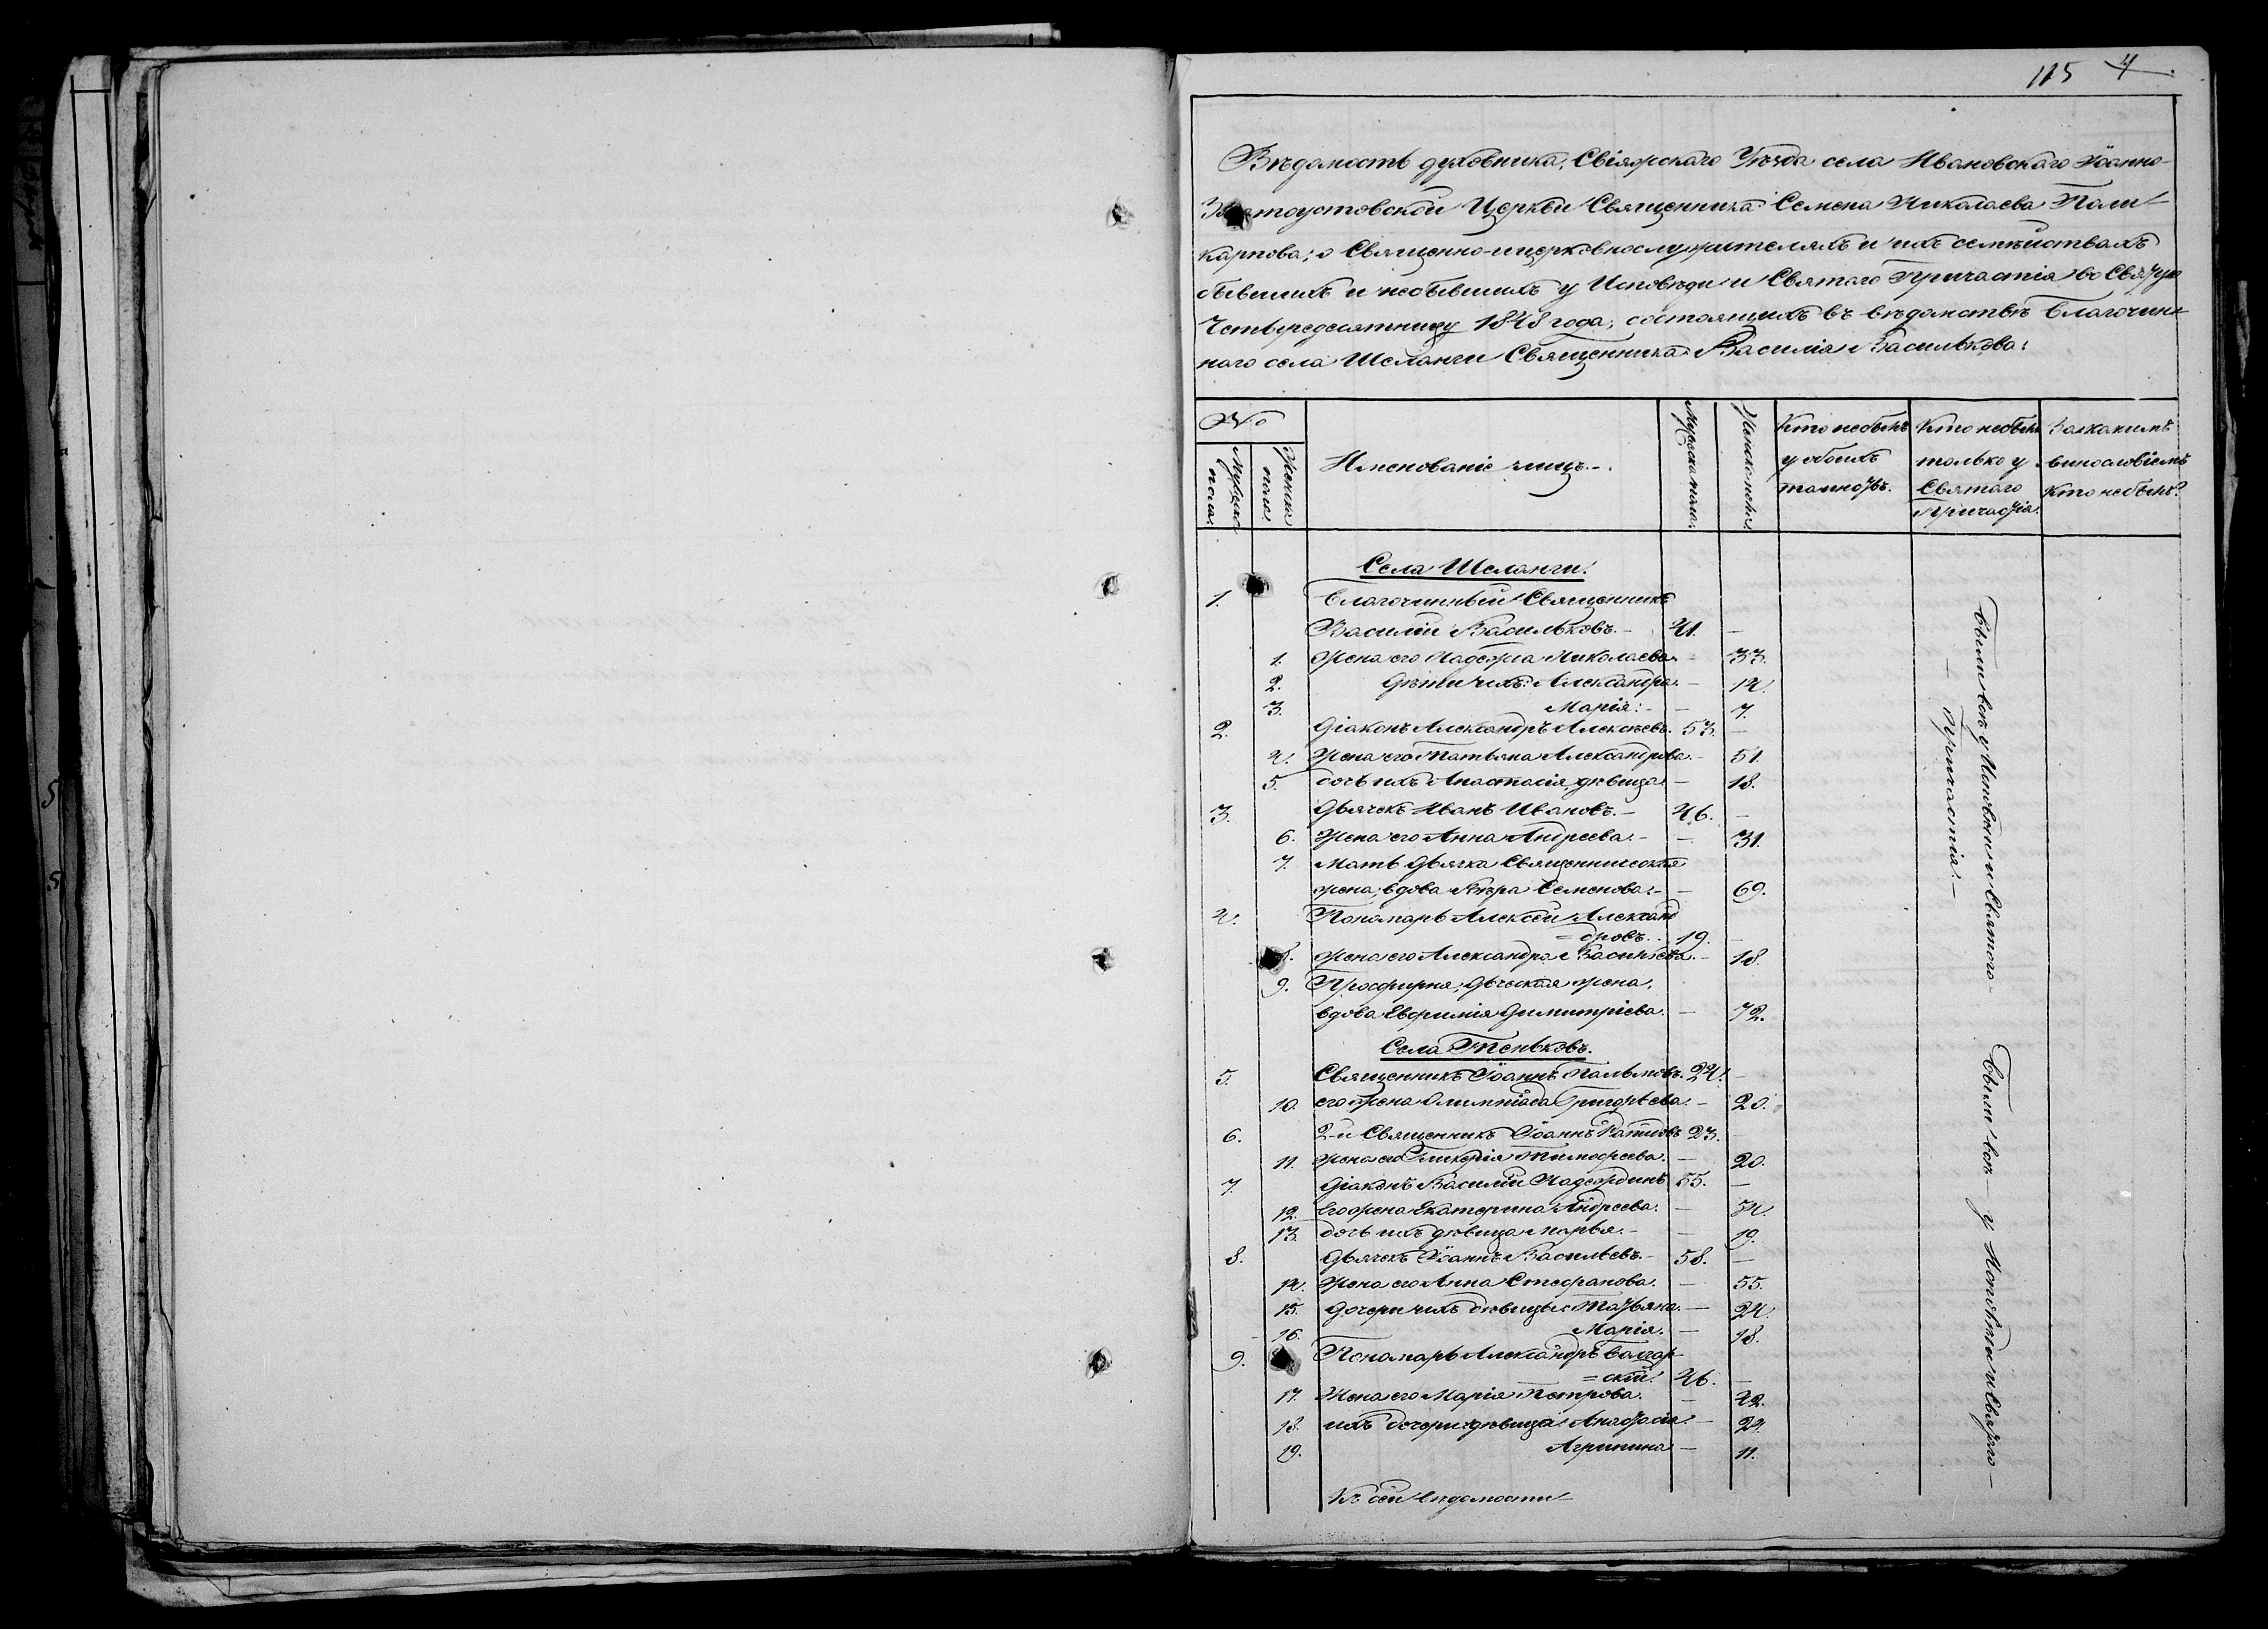 115 4
Вѣдомость духовника, Свіяжскаго Уѣзда села Ивановскаго Іоанно-
Златоустовской Церкви Священника Семена Николаева Поли-
карпова; о Священно-и церковнослужителяхъ и ихъ семѣйствахъ
бывшихъ и небывшихъ у Исповѣди и Святаго Причастія во Святую
Четыредесятницу 1848 года, состоящихъ въ вѣдомствѣ Благочин-
наго села Шеланги Священника Василія Василькова:
№
Мужска пола.
Женска пола.
Именованіе лицъ.
Мужеска пола.
Женска пола.
Кто не былъ у обоихъ таинствъ.
Кто не былъ только у Святаго Причастія.
За какимъ винословіемъ кто не былъ?
Села Шеланги.
1. Благочинный Священникъ
Василій Васильковъ. 41. —
1. жена его Надежда Николаева — 33.
2. Дѣти ихъ: Александра. — 14.
3. Марія: — 7.
2. Діаконъ Александръ Алексѣевъ. 53. —
4. Жена его Татьяна Александрова. — 51.
5. дочь ихъ Анастасія, дѣвица — 18.
3. Дьячекъ Иванъ Ивановъ. 46. —
6. Жена его Анна Андреева. — 31.
7. Мать Дьячка Священническая
жена, вдова Вѣра Семенова: — 69.
4. Пономарь Алексѣй Александ
=дровъ. 19. —
8. жена его Александра Васильева. — 18.
9. Просфирня, Дьяческая жена,
вдова Евфимія Димитріева. — 72.
Села Теньковъ.
5. Священникъ Іоаннъ Пальмовъ. 24. —
10. его жена Олимпіада Григорьева. — 20.
6. 2-й Священникъ Іоаннъ 23. —
11. жена его Гликерія Тимофеева. — 20.
7. Діаконъ Василій Надеждинъ 55. —
12. Его жена Екатерина Андреева. — 54.
13. дочь ихъ дѣвица Марья. — 19.
8. Дьячекъ Іоаннъ Васильевъ. 58. —
14. Жена его Анна Стефанова. — 55.
15. Дочери ихъ дѣвицы: Татьяна. — 24.
16. Марія. — 18.
9. Пономарь Александръ Болгар-
=скій. 46. —
17. Жена его Марія Петрова. — 42.
18. ихъ дочери: дѣвица Анастасія. — 24.
19. Агрипина — 11.
Были всѣ у Исповѣди и Святаго
— Причастія. —
Были всѣ у Исповѣди и Святаго —
Къ сей вѣдомости